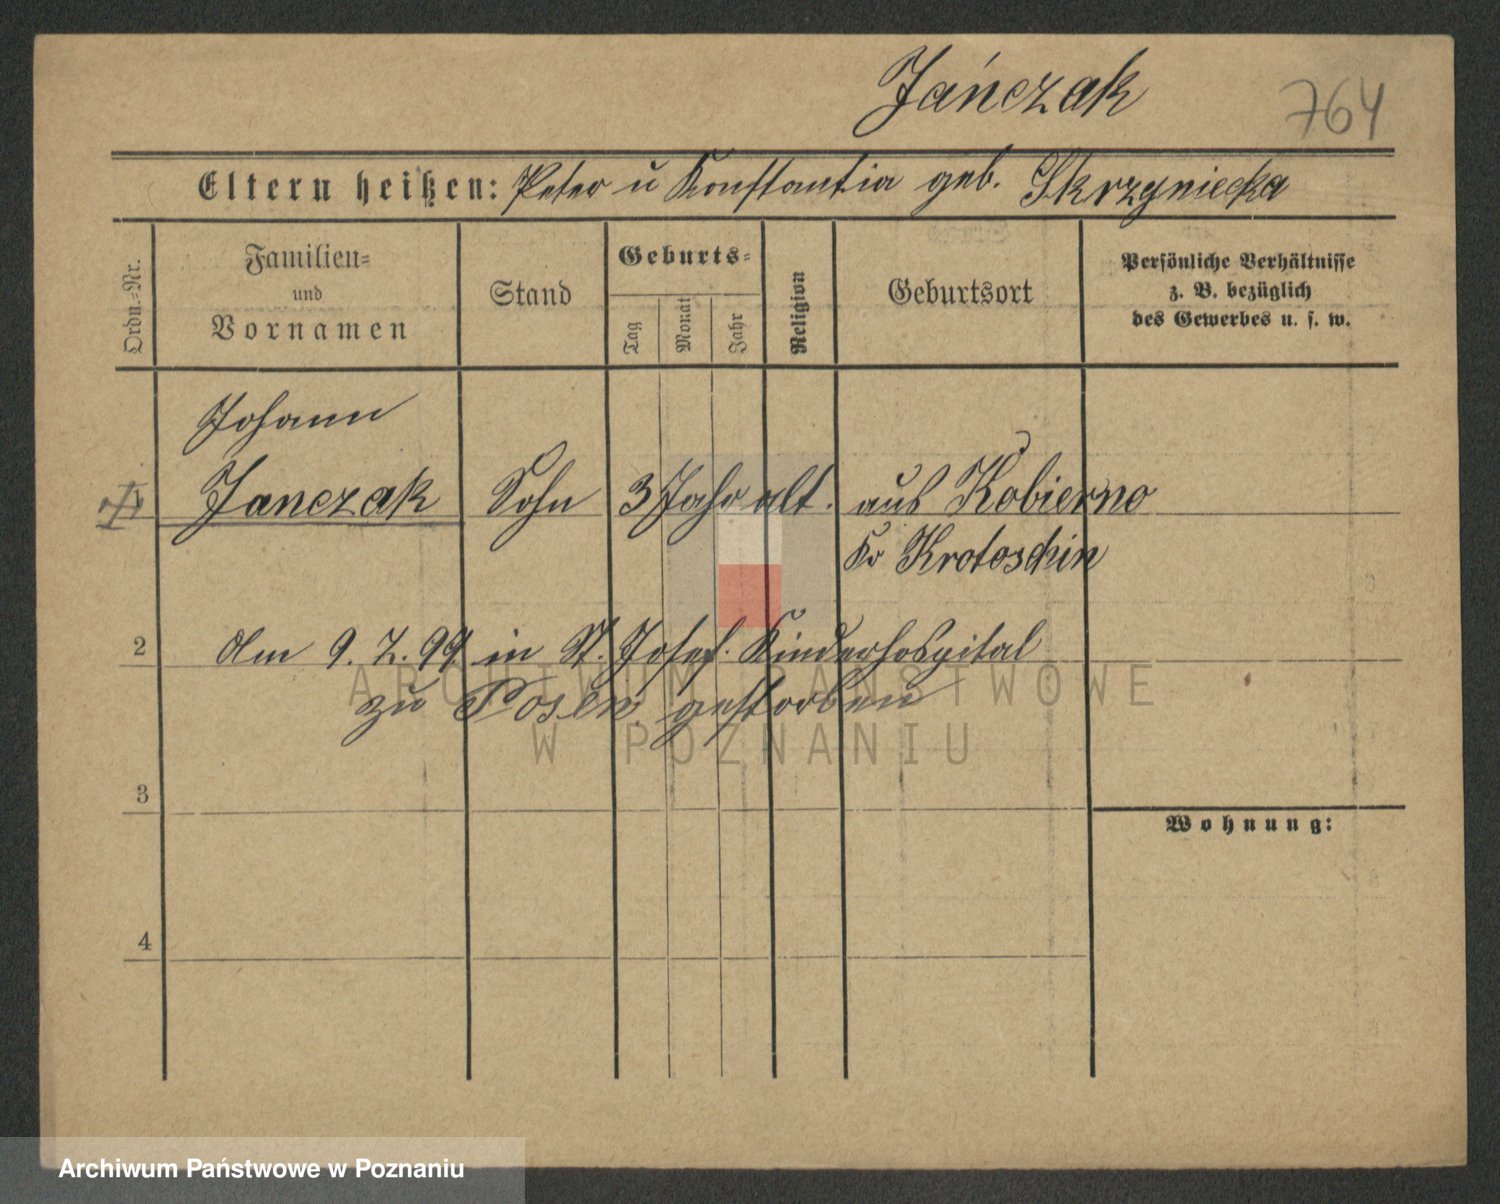 Jańczak
764
Eltern heißen: Peter u Konstantia geb. Skrzyniecka
Ordn.-Nr.
Familien-
und
Vornamen
Stand
Geburts-
Tag
Monat
Jahr
Religion
Geburtsort
Persönliche Verhältnisse
z. B. bezüglich
des Gewerbes u. s. w.
Johann
1 Janczak Sohn 3 Jahr alt. aus Kobierno
Kr Krotoschin
2 Am 9. 7. 99 in St. Josef. Kinderhospital
zu Posen gestorben
3
Wohnung:
4
ARCHIWUM PAŃSTWOWE
W POZNANIU
Archiwum Państwowe w Poznaniu